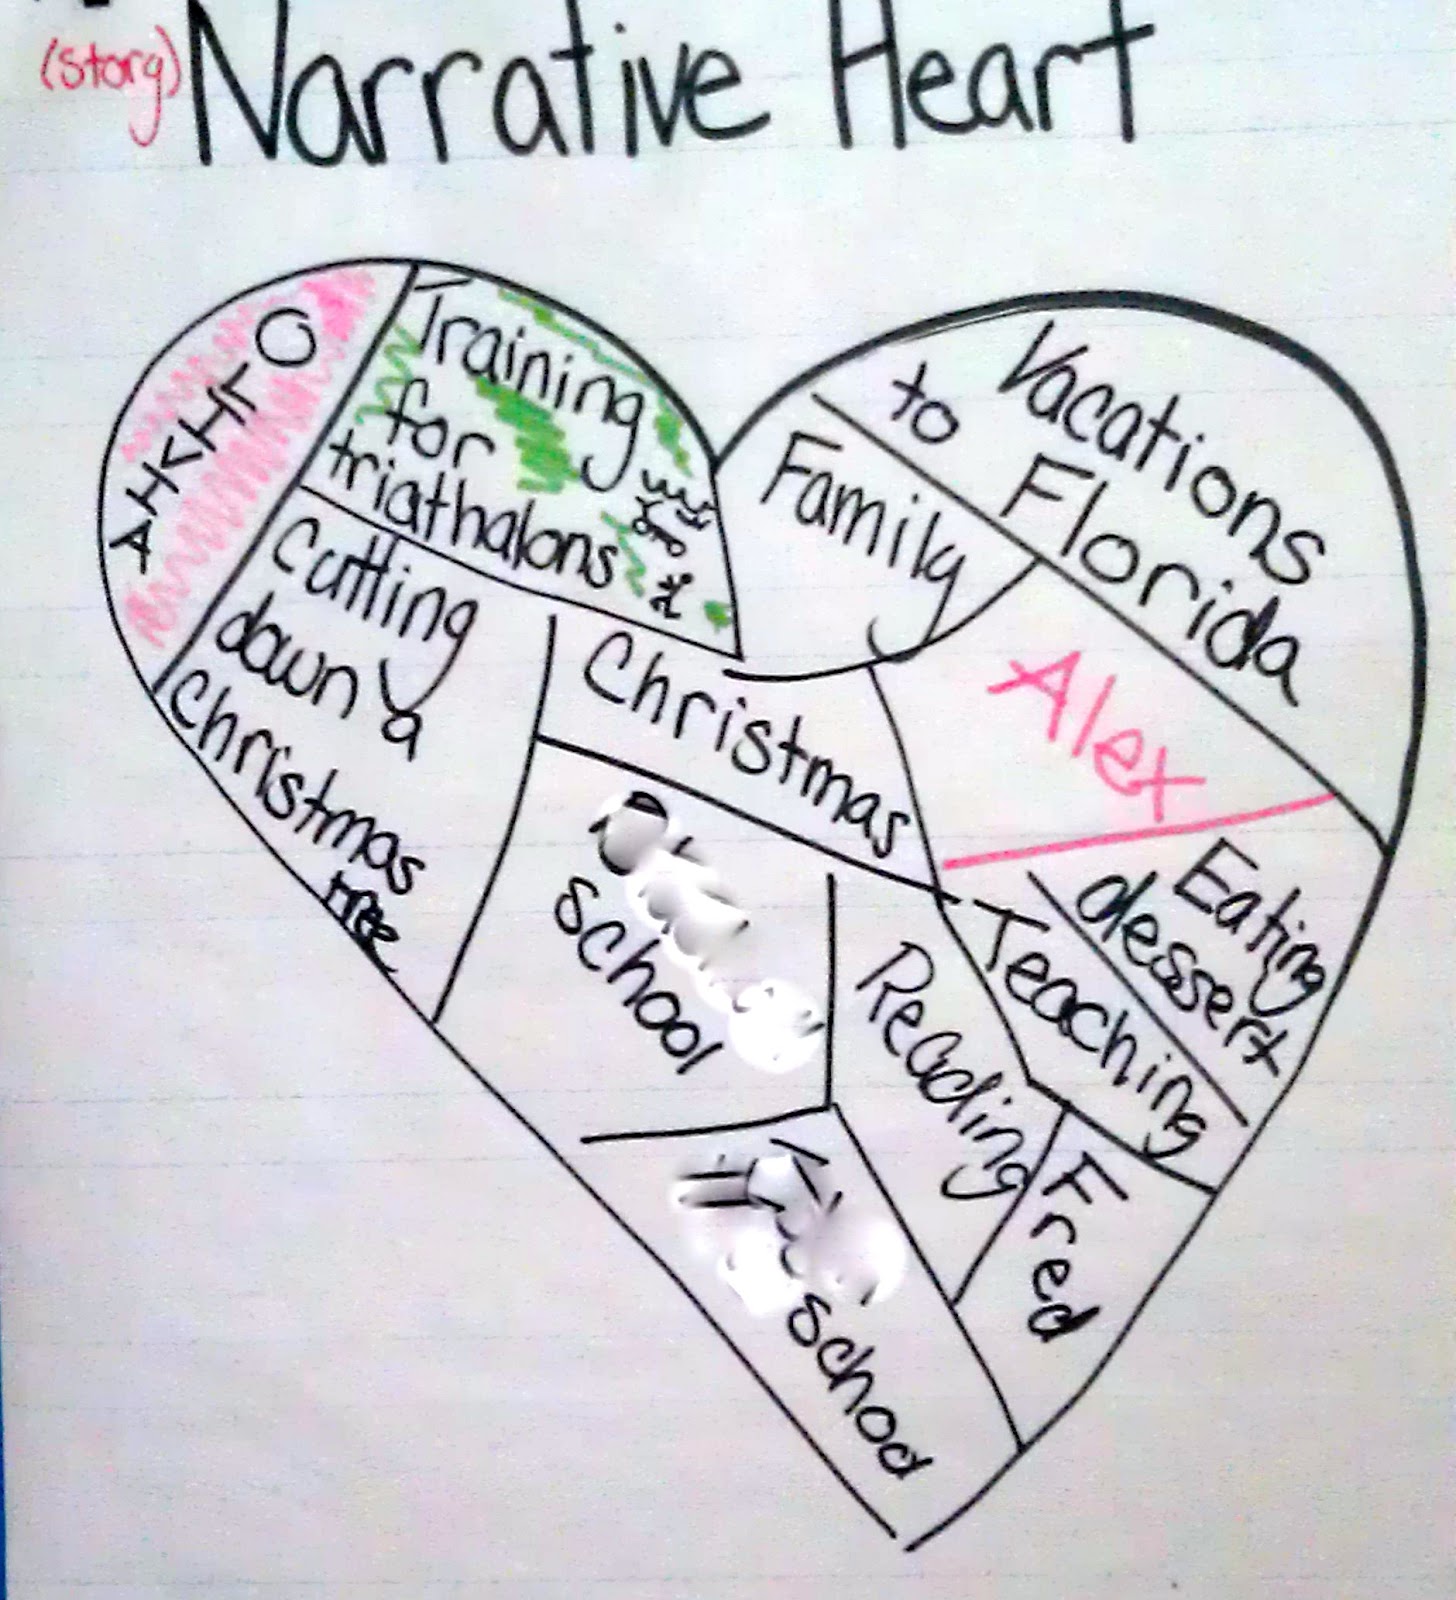 (story) Narrative Heart
OLIVIA
Training
for
triathalons
Vacations
to Florida
Family
Cutting
down a
Christmas
tree
Christmas
Alex
Eating
dessert
Teaching
school
Reading
Fred
school